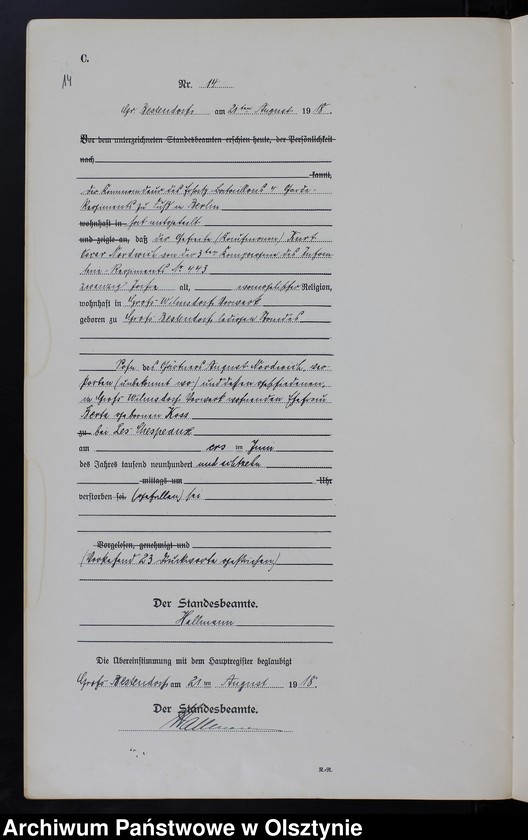 C.
14
Nr. 14
Gr. Bestendorf am 21ten August 1918.
Vor dem unterzeichneten Standesbeamten erschien heute, der Persönlichkeit
nach
kannt,
der Kommandeur des Ersatz-Bataillons 4. Garde-
Regiments zu Fuß in Berlin
wohnhaft in hat mitgeteilt
und zeigte an, daß der Gefreite (Kaufmann) Kurt
Oscar von der 3ten Kompagnie des Infan-
terie-Regiments No 443
zwanzig Jahre alt, evangelischer Religion,
wohnhaft in Groß Wilmsdorf Vorwerk
geboren zu Groß Bestendorf ledigen Standes
Sohn des Gärtners August ver-
storben (unbekannt wo) und dessen geschiedenen,
in Groß Wilmsdorf Vorwerk wohnenden Ehefrau
Berta geborenen Koss
zu bei Les
am ers ten Juni
des Jahres tausend neunhundert und achtzehn
mittags um Uhr
verstorben sei. (gefallen) sei
Vorgelesen, genehmigt und
(Vorstehend 23 Druckworte gestrichen)
Der Standesbeamte.
Hallmann
Die Übereinstimmung mit dem Hauptregister beglaubigt
Groß-Bestendorf am 21ten August 1918.
Der Standesbeamte.
Hallmann
R.-R.
Archiwum Państwowe w Olsztynie